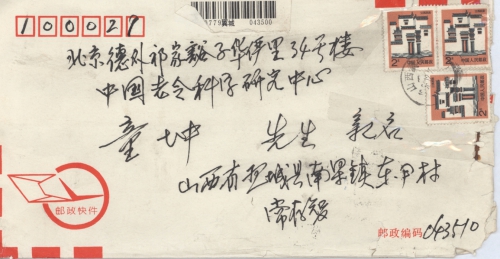 100029
779 翼城 043500
北京德外祁家豁子华伊里34号楼
中国老令科学研究中心
童坤 先生 亲启
山西省翼城县南梁镇东甲村
常
邮政快件
邮政编码 043510
中国人民邮政
中国人民邮政
中国人民邮政
山西